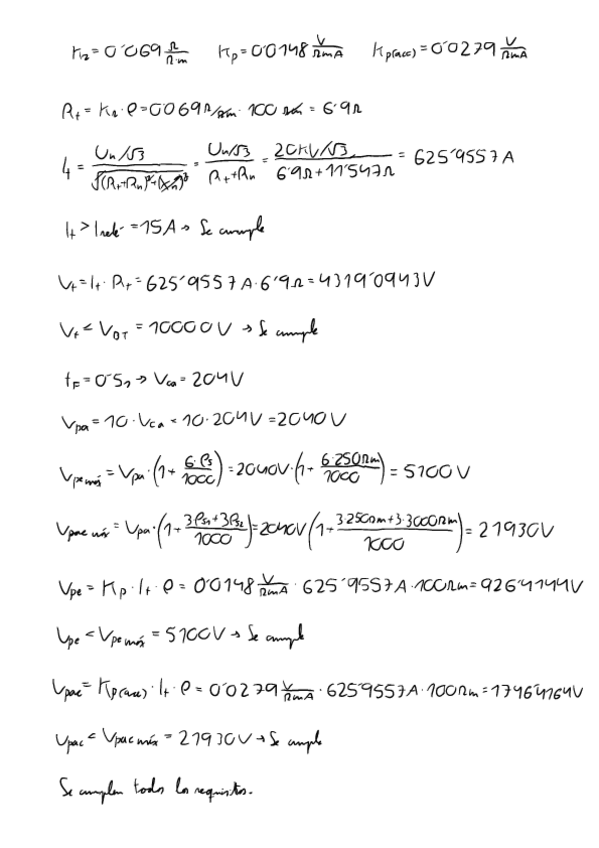 Kr = 0'069 Ω/Ω·m Kp = 0'0148 V/ΩmA Kp(acc) = 0'0279 V/ΩmA
Rt = Kr · ρ = 0'069 Ω/Ωm · 100 Ωm = 6'9Ω
It = Un/√3 / √((Rt+Rn)²+(Xn)²) = Un/√3 / Rt+Rn = 20kV/√3 / 6'9Ω+11'547Ω = 625'9557A
It > Irelé = 15A → Se cumple
Vt = It · Rt = 625'9557A · 6'9Ω = 4319'0943V
Vt < VBT = 10000V → Se cumple
tF = 0'5s → Vca = 204V
Vpa = 10 · Vca = 10 · 204V = 2040V
Vpe máx = Vpa · (1 + 6·ρs/1000) = 2040V · (1 + 6·250Ωm/1000) = 5100V
Vpac máx = Vpa · (1 + 3ρs1+3ρs2/1000) = 2040V (1 + 3·250Ωm+3·3000Ωm/1000) = 21930V
Vpe = Kp · It · ρ = 0'0148 V/ΩmA · 625'9557A · 100Ωm = 926'4144V
Vpe < Vpe máx = 5100V → Se cumple
Vpac = Kp(acc) · It · ρ = 0'0279 V/ΩmA · 625'9557A · 100Ωm = 1746'4164V
Vpac < Vpac máx = 21930V → Se cumple
Se cumplen todos los requisitos.